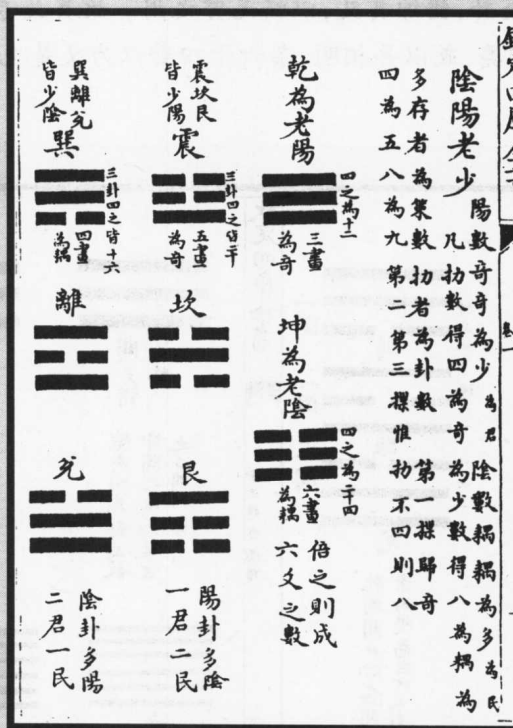 陰陽老少
陽數奇奇為少為君陰數耦耦為多為民
凡扐數得四為奇為少數得八為耦為
多存者為策數扐者為卦數第一揲歸奇
四為五八為九第二第三揲惟扐不四則八
乾為老陽
四之為十二
三畫
為奇
坤為老陰
四之為二十四
六畫
為耦
倍之則成
六爻之數
震坎艮
皆少陽
震
三卦四之皆二十
五畫
為奇
坎
艮
陽卦多陰
一君二民
巽離兌
皆少陰
巽
三卦四之皆十六
四畫
為耦
離
兌
陰卦多陽
二君一民